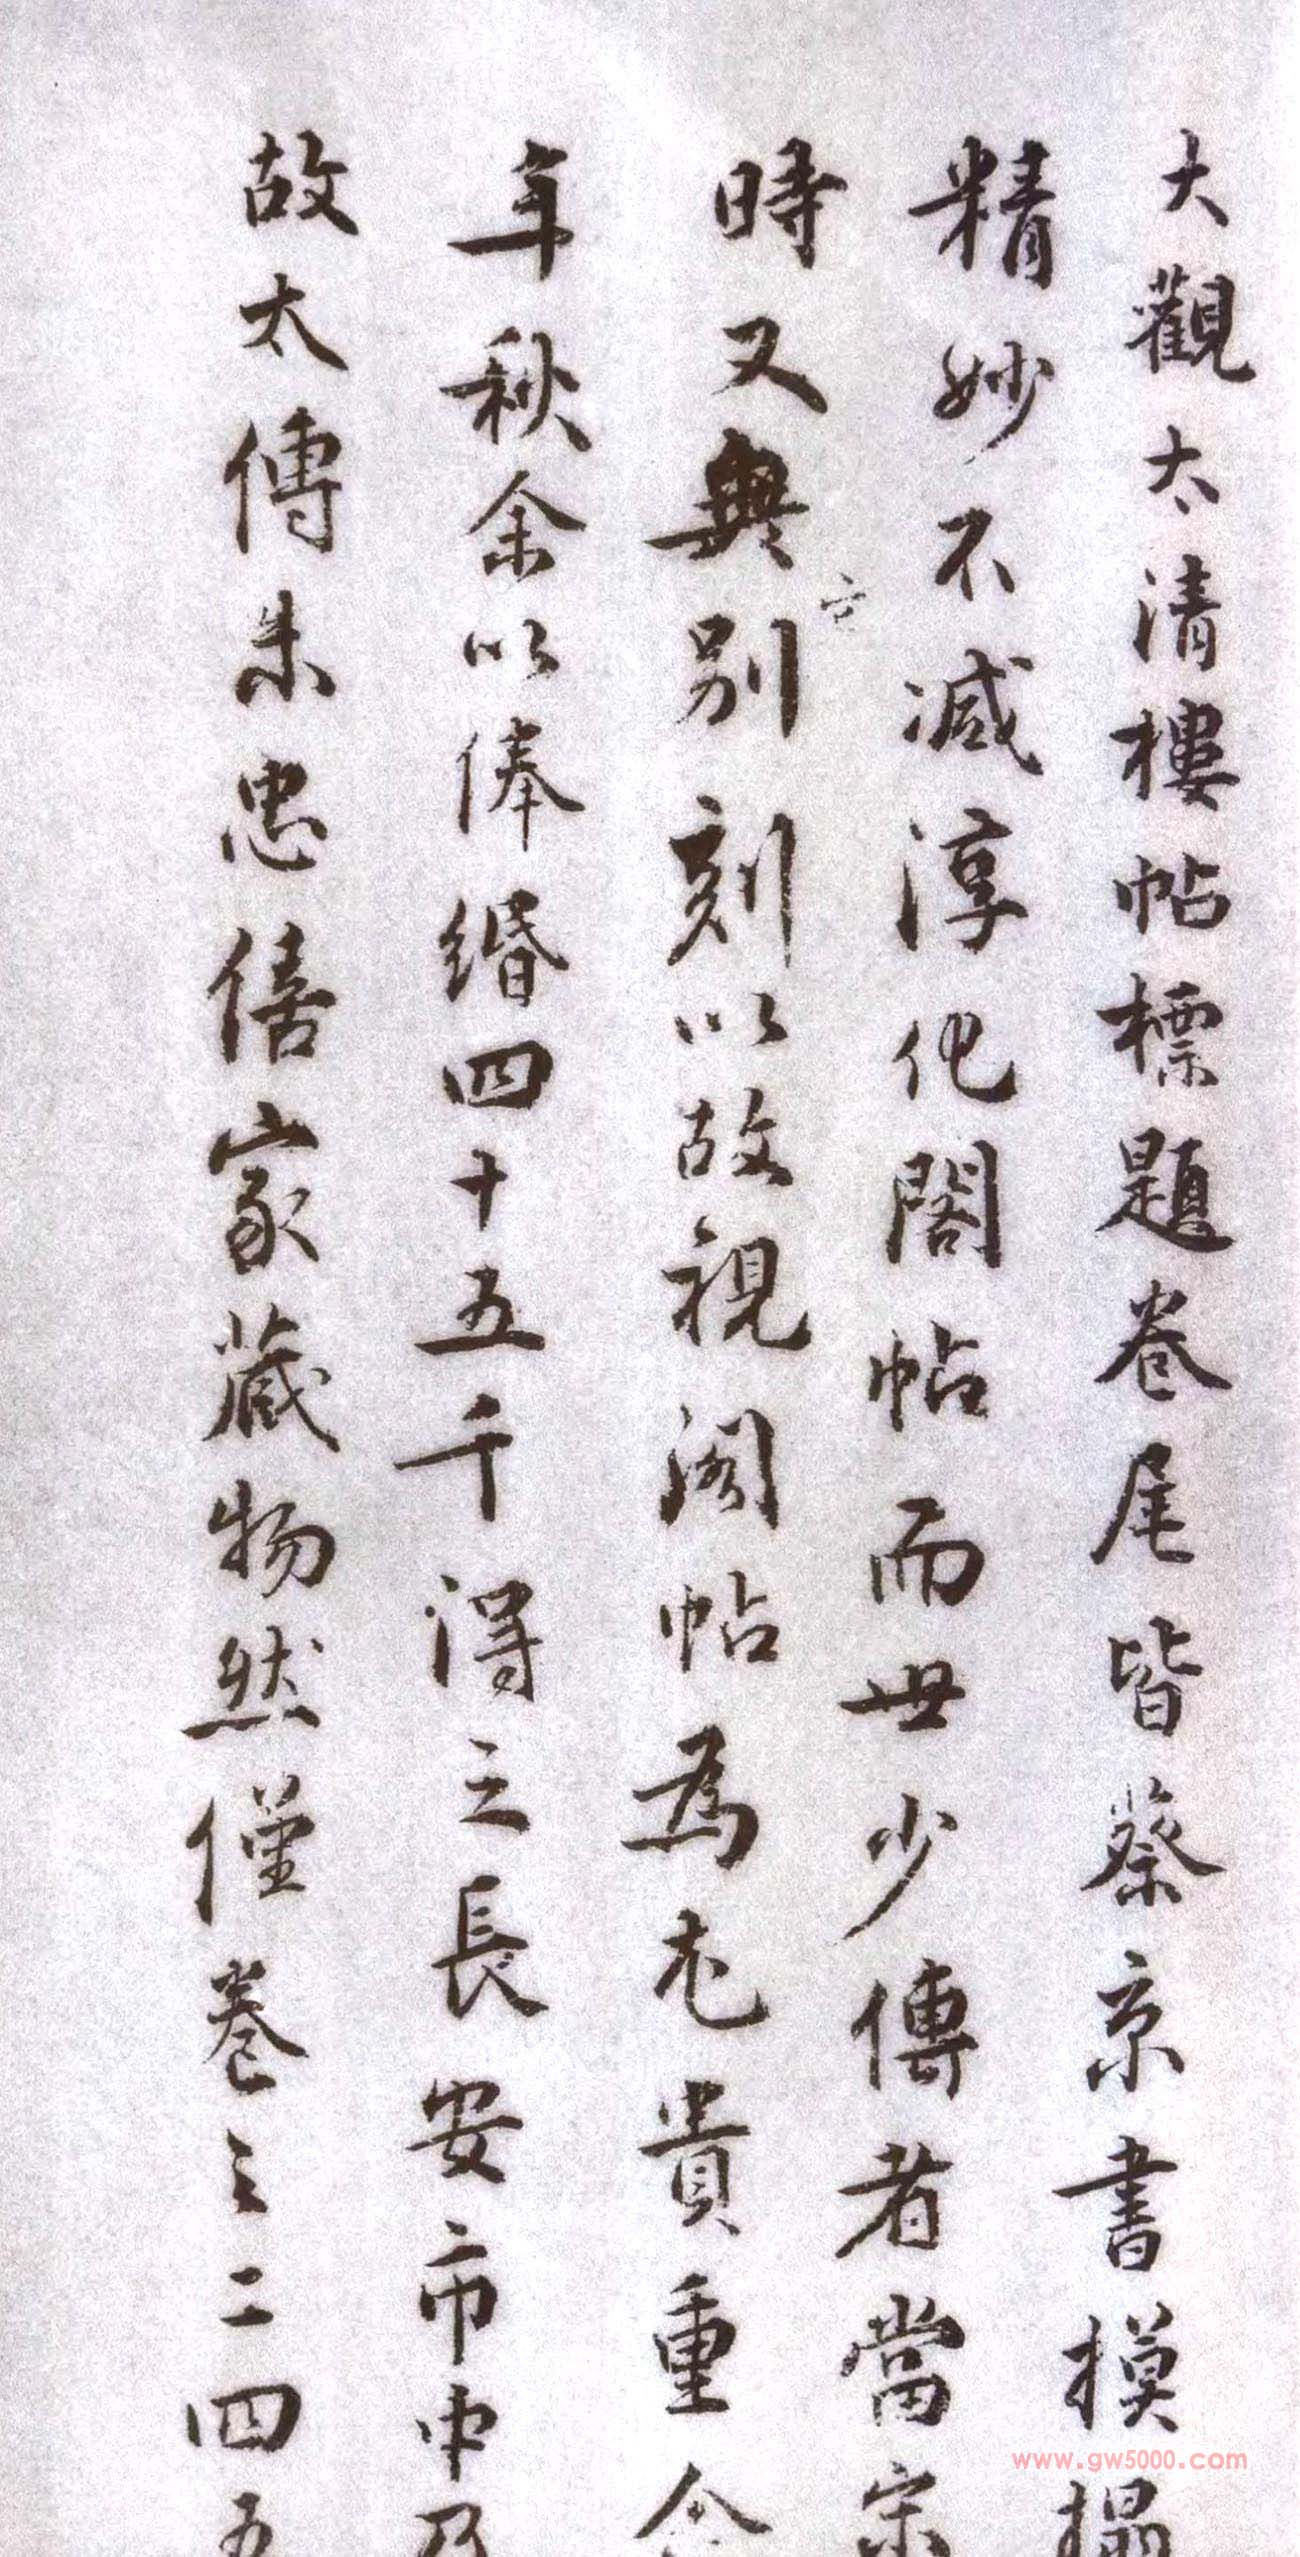 大觀太清樓帖標題卷尾皆蔡京書模搨
精妙不減淳化閣帖而世少傳者當宋
時又無別刻以故視閣帖為尤貴重今
年秋余以俸緡四十五千得之長安市中乃
故太傅朱忠僖家藏物然僅卷之二四五
www.gw5000.com